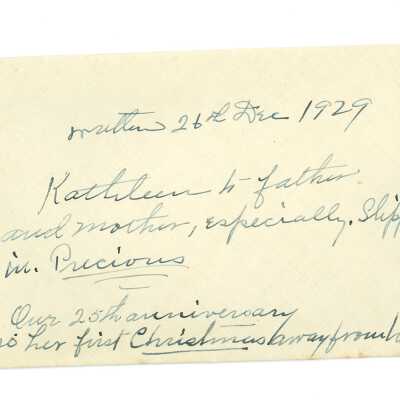 written 26th Dec 1929
Kathleen to father
and mother, especially. Slipp
in. Precious
Our 25th anniversary
her first Christmas away from h